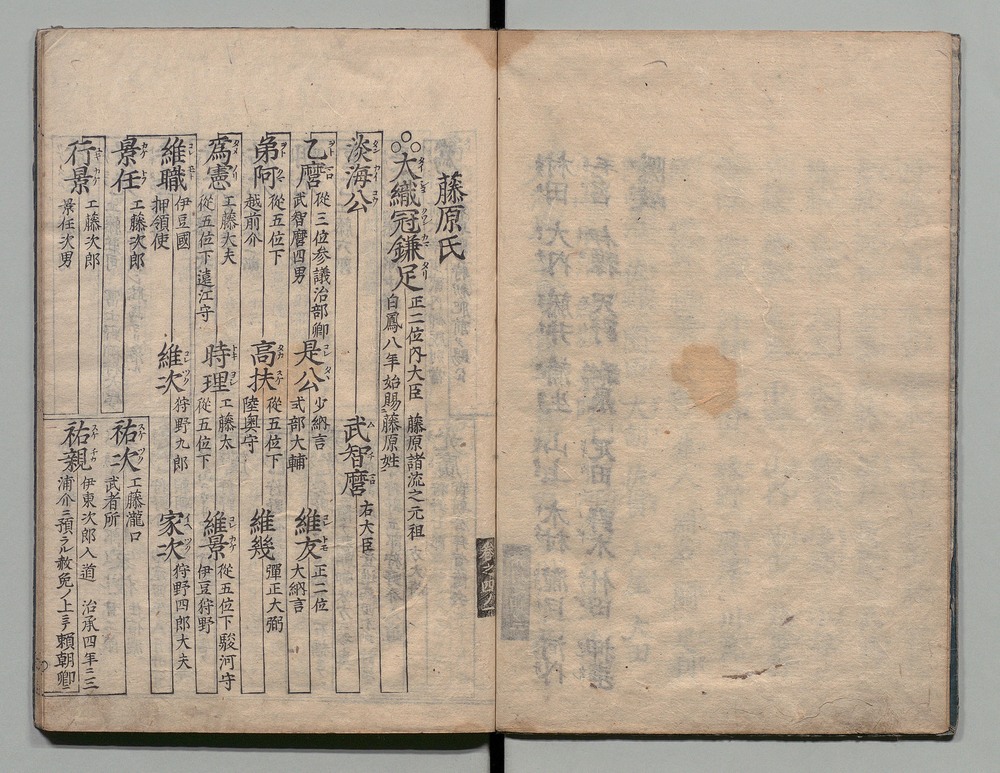 藤原氏
大織冠鎌足 正二位内大臣 藤原諸流之元祖
白鳳八年始賜藤原姓
淡海公 武智麿 右大臣
乙麿 從三位参議治部卿
武智麿四男
是公 少納言
式部大輔
維友 正二位
大納言
弟阿 從五位下
越前介
高扶 從五位下
陸奥守
維幾 彈正大弼
爲憲 工藤大夫
從五位下遠江守
時理 工藤太
從五位下
維景 從五位下駿河守
伊豆狩野
維職 伊豆國
押領使
維次 狩野九郎
家次 狩野四郎大夫
景任 工藤次郎
祐次 工藤瀧口
武者所
行景 工藤次郎
景任次男
祐親 伊東次郎入道 治承四年ニ三
浦介ニ預ラル赦免ノ上ニテ頼朝卿ニ
巻之四